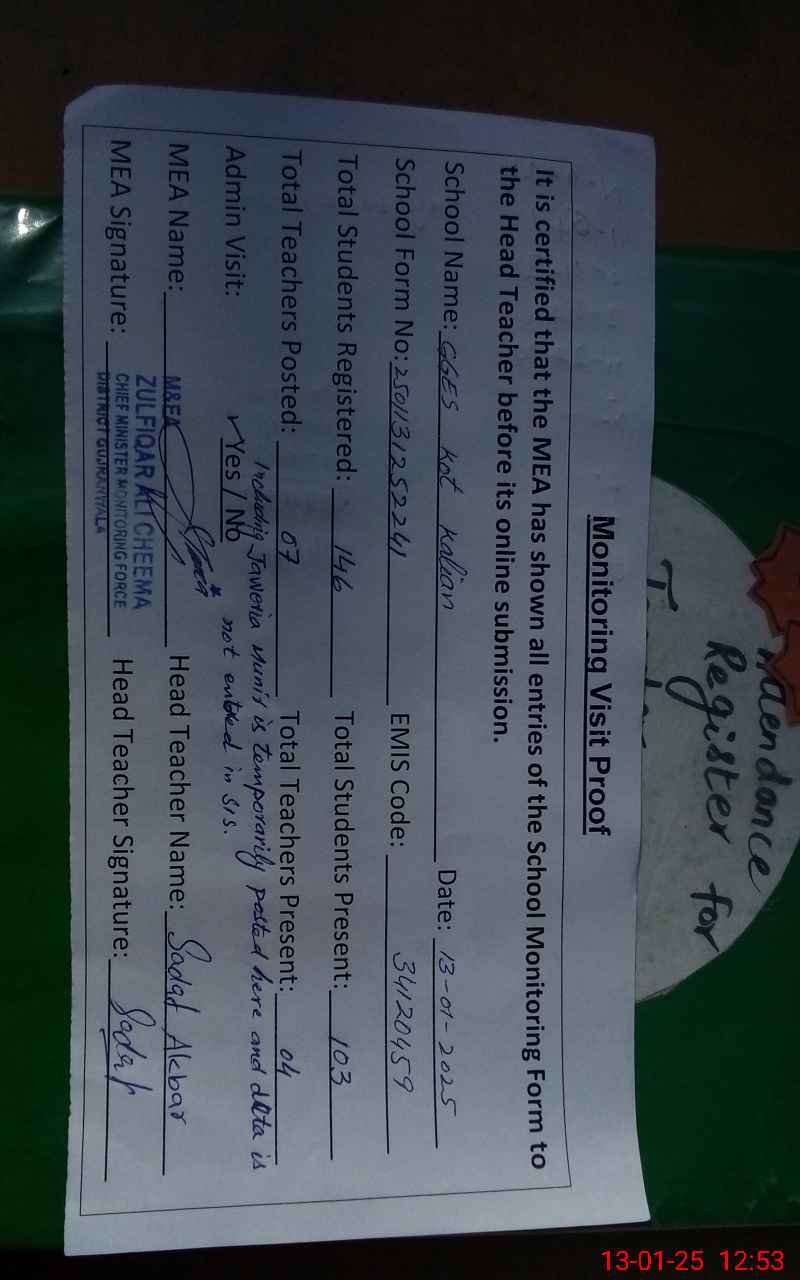 Monitoring Visit Proof
It is certified that the MEA has shown all entries of the School Monitoring Form to
the Head Teacher before its online submission.
School Name: GGES Kot Kalian Date: 13-01-2025
School Form No: 2501131252241 EMIS Code: 34120459
Total Students Registered: 146 Total Students Present: 103
Total Teachers Posted: 07 Total Teachers Present: 04
Including Jaweria Munir is temporarily posted here and data is
not entered in SIS.
Admin Visit: Yes / No
MEA Name: Head Teacher Name: Sadaf Akbar
MEA Signature: Head Teacher Signature: Sadaf
M&EA
ZULFIQAR ALI CHEEMA
CHIEF MINISTER MONITORING FORCE
DISTRICT GUJRANWALA
Register for
13-01-25 12:53